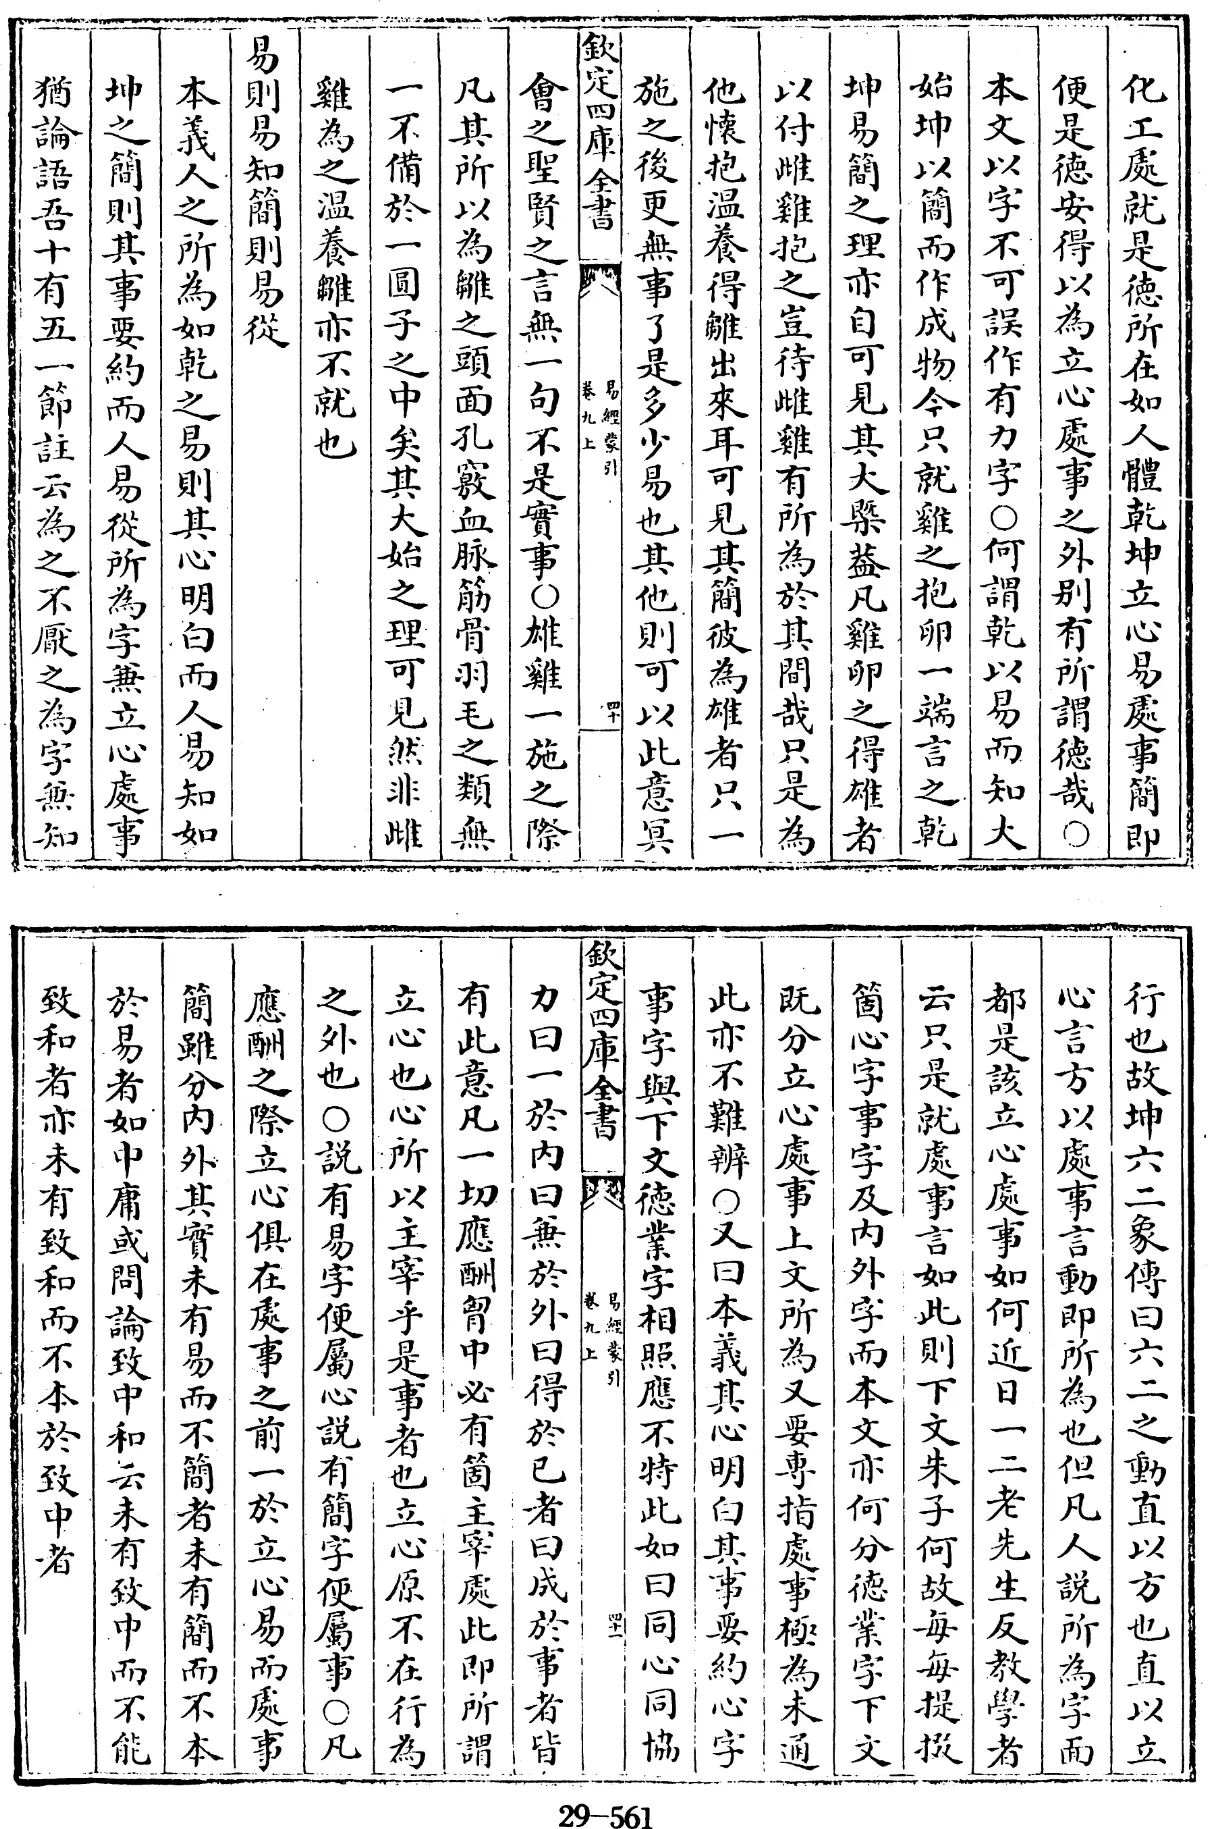 化工處就是德所在如人體乾坤立心易處事簡即
便是德安得以為立心處事之外別有所謂德哉○
本文以字不可誤作有力字○何謂乾以易而知大
始坤以簡而作成物今只就雞之抱卵一端言之乾
坤易簡之理亦自可見其大槩葢凡雞卵之得雄者
以付雌雞抱之豈待雌雞有所為於其間哉只是為
他懷抱温養得雛出來耳可見其簡彼為雄者只一
施之後更無事了是多少易也其他則可以此意冥
欽定四庫全書
易經蒙引
卷九上
四十
會之聖賢之言無一句不是實事○雄雞一施之際
凡其所以為雛之頭面孔竅血脉筋骨羽毛之類無
一不備於一圓子之中矣其大始之理可見然非雌
雞為之温養雛亦不就也
易則易知簡則易從
本義人之所為如乾之易則其心明白而人易知如
坤之簡則其事要約而人易從所為字兼立心處事
猶論語吾十有五一節註云為之不厭之為字兼知
行也故坤六二象傳曰六二之動直以方也直以立
心言方以處事言動即所為也但凡人説所為字面
都是該立心處事如何近日一二老先生反教學者
云只是就處事言如此則下文朱子何故每每提掇
箇心字事字及内外字而本文亦何分德業字下文
既分立心處事上文所為又要専指處事極為未通
此亦不難辨○又曰本義其心明白其事要約心字
事字與下文德業字相照應不特此如曰同心同協
欽定四庫全書
易經蒙引
卷九上
四十一
力曰一於内曰兼於外曰得於已者曰成於事者皆
有此意凡一切應酬胷中必有箇主宰處此即所謂
立心也心所以主宰乎是事者也立心原不在行為
之外也○説有易字便屬心説有簡字便屬事○凡
應酬之際立心俱在處事之前一於立心易而處事
簡雖分内外其實未有易而不簡者未有簡而不本
於易者如中庸或問論致中和云未有致中而不能
致和者亦未有致和而不本於致中者
29-561